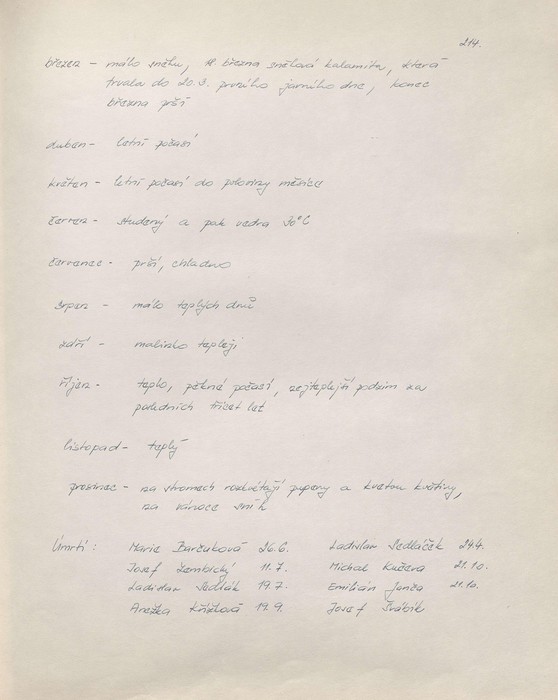 214.
březen - málo sněhu, 18. března sněhová kalamita, která
trvala do 20.3. prvního jarního dne, konec
března prší
duben - letní počasí
květen - letní počasí do poloviny měsíce
červen - studený a pak vedra 30°C
červenec - prší, chladno
srpen - málo teplých dnů
září - malinko tepleji
říjen - teplo, pěkné počasí, nejteplejší podzim za
posledních třicet let
listopad - teplý
prosinec - na stromech rozkvétají pupeny a kvetou květiny,
na vánoce sníh
Úmrtí: Marie Barčuková 26.6. Ladislav Sedláček 24.4.
Josef Zembický 11.7. Michal Kučera 21.10.
Ladislav Sedlák 19.7. Emilián Janča 21.10.
Anežka Křížková 19.9. Josef Švábík